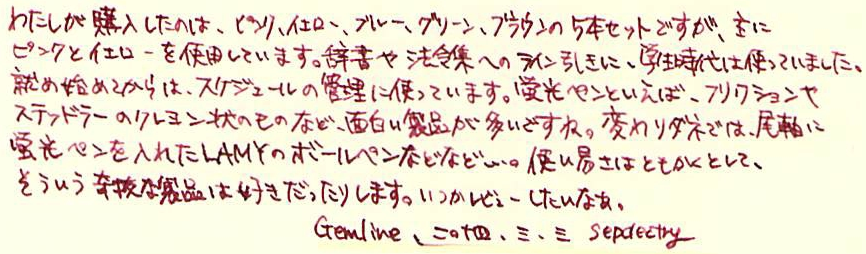 わたしが購入したのは、ピンク、イエロー、ブルー、グリーン、ブラウンの5本セットですが、主に
ピンクとイエローを使用しています。辞書や法令集へのライン引きに、学生時代は使っていました。
就め始めてからは、スケジュールの管理に使っています。蛍光ペンといえば、フリクションや
ステッドラーのクレヨン状のものなど、面白い製品が多いですね。変わりダネでは、尾軸に
蛍光ペンを入れたLAMYのボールペンなどなど…。使い易さはともかくとして、
そういう奇抜な製品は好きだったりします。いつかレビューしたいなぁ。
Gemline、二〇十四、三、三